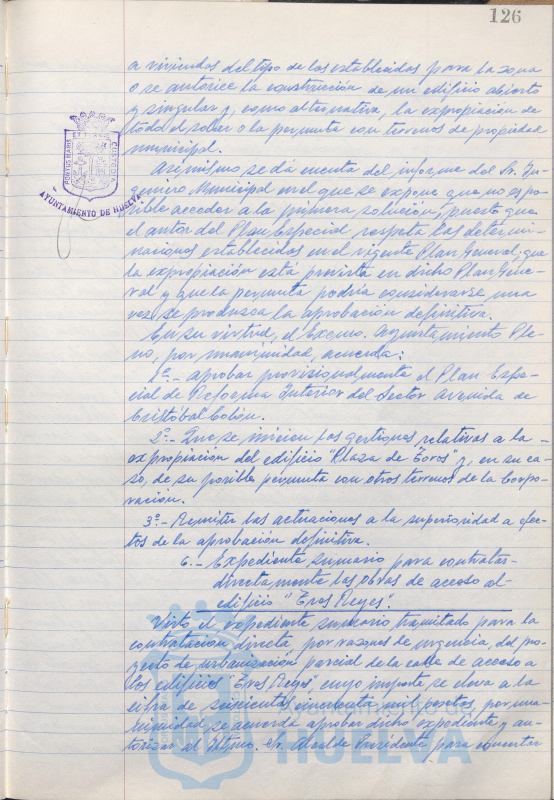 126
a viviendas del tipo de los establecidos para la zona
o se autorice la construcción de un edificio abierto
y singular y, como alternativa, la expropiación de
todo el solar o la permuta con terrenos de propiedad
municipal.
Asimismo se dá cuenta del informe del Sr. In-
geniero Municipal en el que se expone que no es po-
sible acceder a la primera solución, puesto que
el autor del Plan Especial respeta las determi-
naciones establecidas en el vigente Plan General; que
la expropiación está prevista en dicho Plan Gene-
ral y que la permuta podría considerarse una
vez se produzca la aprobación definitiva.
En su virtud, el Excmo. Ayuntamiento Ple-
no, por unanimidad, acuerda:
1º.- Aprobar provisionalmente el Plan Espe-
cial de Reforma Interior del Sector Avenida de
Cristóbal Colón.
2º.- Que se inicien las gestiones relativas a la
expropiación del edificio "Plaza de Toros" y, en su ca-
so, de su posible permuta con otros terrenos de la Corpo-
ración.
3º.- Remitir las actuaciones a la superioridad a efec-
tos de la aprobación definitiva.
6.- Expediente sumario para contratar
directamente las obras de acceso al
edificio "Tres Reyes".
Visto el expediente sumario tramitado para la
contratación directa, por razones de urgencia, del pro-
yecto de urbanización parcial de la calle de acceso a
los edificios "Tres Reyes" cuyo importe se eleva a la
cifra de seiscientas cincuenta mil pesetas, por una-
nimidad se acuerda aprobar dicho expediente y au-
torizar al Iltmo. Sr. Alcalde Presidente para concertar
PORTUS MARIS ET TERRAE CUSTODIA
AYUNTAMIENTO DE HUELVA
HUELVA